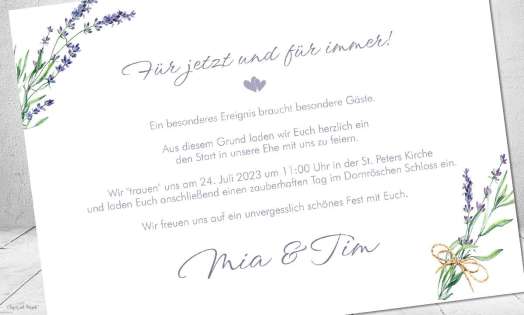 Für jetzt und für immer!
Ein besonderes Ereignis braucht besondere Gäste.
Aus diesem Grund laden wir Euch herzlich ein
den Start in unsere Ehe mit uns zu feiern.
Wir "trauen" uns am 24. Juli 2023 um 11:00 Uhr in der St. Peters Kirche
und laden Euch anschließend einen zauberhaften Tag im Dornröschen Schloss ein.
Wir freuen uns auf ein unvergesslich schönes Fest mit Euch.
Mia & Tim